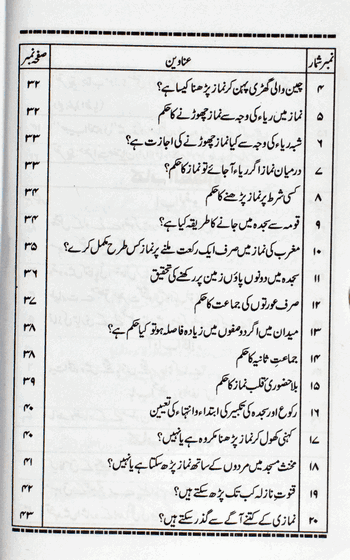 نمبر شمار عناوین صفحہ نمبر
۴ چین والی گھڑی پہن کر نماز پڑھنا کیسا ہے؟ ۳۲
۵ نماز میں ریاء کی وجہ سے نماز چھوڑنے کا حکم ۳۲
۶ شبہ ریاء کی وجہ سے کیا نماز چھوڑنے کی اجازت ہے؟ ۳۳
۷ درمیان نماز اگر ریاء آ جائے تو نماز کا حکم؟ ۳۳
۸ کسی شرط پر نماز پڑھنے کا حکم ۳۴
۹ قومہ سے سجدہ میں جانے کا طریقہ کیا ہے؟ ۳۴
۱۰ مغرب کی نماز میں صرف ایک رکعت ملنے پر نماز کس طرح مکمل کرے؟ ۳۵
۱۱ سجدہ میں دونوں پاؤں زمین پر رکھنے کی تحقیق ۳۶
۱۲ صرف عورتوں کی جماعت کا حکم ۳۷
۱۳ میدان میں اگر دو صفوں میں زیادہ فاصلہ ہو تو کیا حکم ہے؟ ۳۸
۱۴ جماعت ثانیہ کا حکم ۳۸
۱۵ بلا حضوری قلب نماز کا حکم ۳۹
۱۶ رکوع اور سجدہ کی تکبیر کی ابتداء و انتہاء کی تعیین ۴۰
۱۷ کہنی کھول کر نماز پڑھنا مکروہ ہے یا نہیں؟ ۴۰
۱۸ مخنث مسجد میں مردوں کے ساتھ نماز پڑھ سکتا ہے یا نہیں؟ ۴۱
۱۹ قنوت نازلہ کب تک پڑھ سکتے ہیں؟ ۴۲
۲۰ نمازی کے کتنے آگے سے گذر سکتے ہیں؟ ۴۳